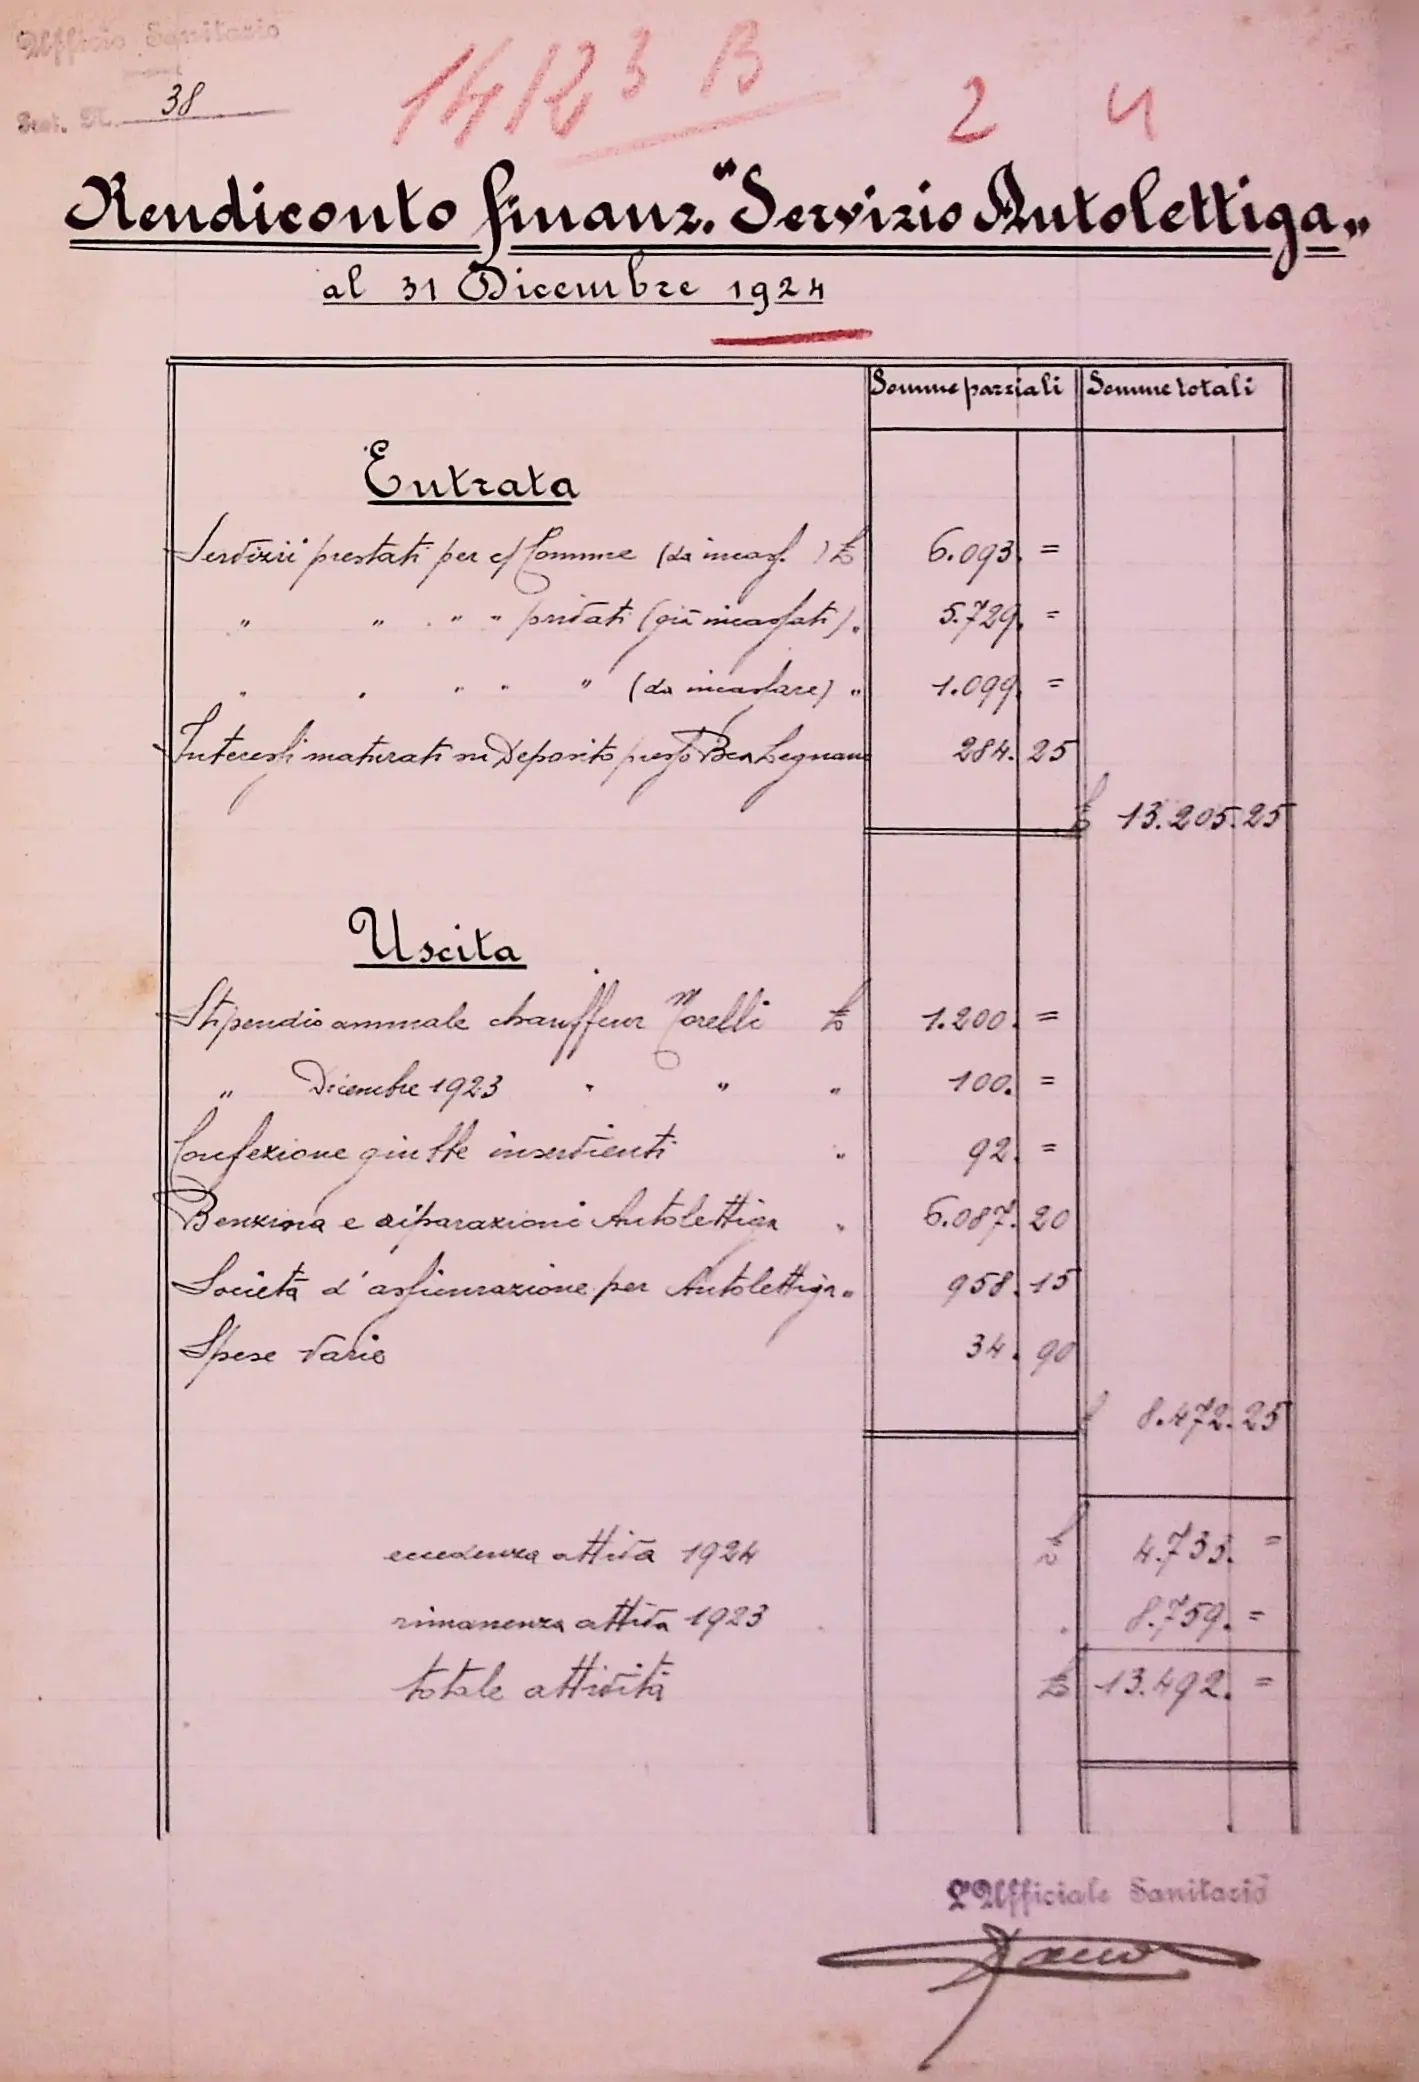 Ufficio Sanitario
Prot. N. 38
14123 B
2 4
Rendiconto finanz. "Servizio Autolettiga"
al 31 Dicembre 1924
Somme parziali Somme totali
Entrata
Servizii prestati per c/ Comune (da incass. ) £ 6.093. =
" " " " privati (già incassati) " 5.729. =
" " " " " (da incassare) " 1.099. =
Interessi maturati su Deposito presso Bca Legnano 284. 25
£ 13.205.25
Uscita
Stipendio annuale chauffeur Morelli £ 1.200. =
" Dicembre 1923 " " " 100. =
Confezione giubbe inservienti " 92. =
Benzina e riparazioni Autolettiga " 6.087. 20
Società d'assicurazione per Autolettiga " 958. 15
Spese varie 34. 90
£ 8.472.25
eccedenza attiva 1924 £ 4.733. =
rimanenza attiva 1923 " 8.759. =
totale attività £ 13.492. =
L'Ufficiale Sanitario